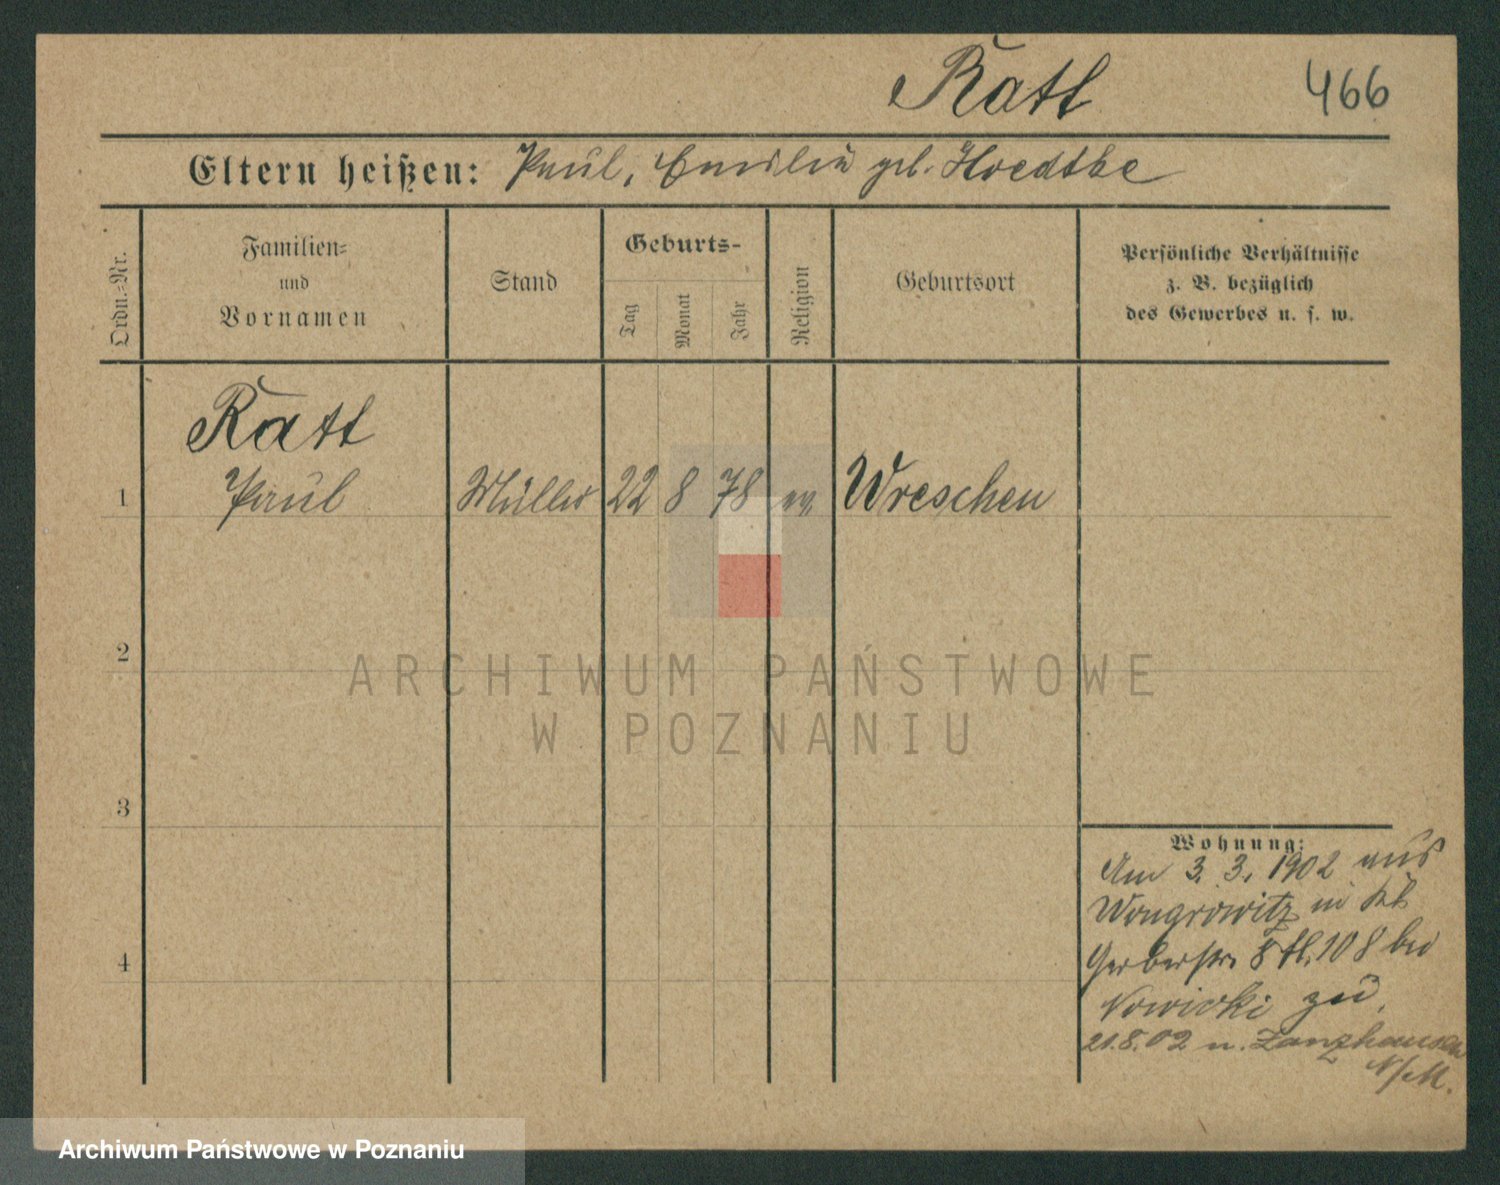 Ratt 466
Eltern heißen: Paul, Emilie geb. Hoedtke
Ordn.-Nr.
Familien-
und
Vornamen
Stand
Geburts-
Tag
Monat
Jahr
Religion
Geburtsort
Persönliche Verhältnisse
z. B. bezüglich
des Gewerbes u. s. w.
Ratt
1 Paul Müller 22 8 78 ev. Wreschen
2
3
4
Wohnung:
Am 3. 3. 1902 aus
Wongrowitz in
Gerberstr. 8 bei
Nowicki zu.
21.8.02 n. Zanzhausen
N/M.
ARCHIWUM PAŃSTWOWE
W POZNANIU
Archiwum Państwowe w Poznaniu